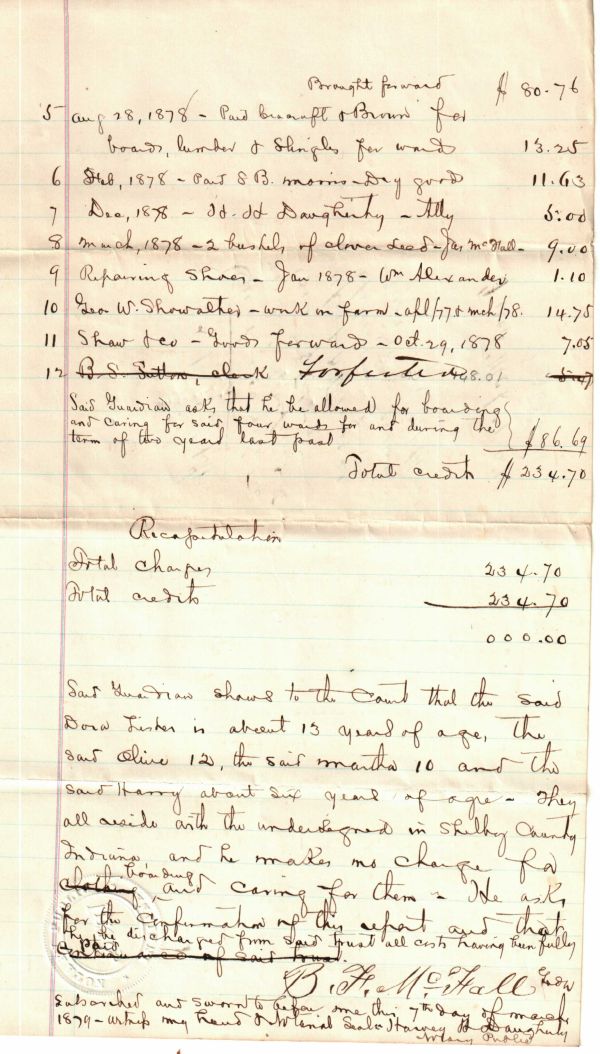 Brought forward $ 80.76
5 Aug 28, 1878 - Paid Cracraft & Brown for
boards, lumber & Shingles for wards 13.25
6 Feb, 1878 - Paid S B. Morris - Dry goods 11.63
7 Dec, 1878 - H. H Daugherty - Atty 5.00
8 March, 1878 - 2 bushels of clover seed - Jas McFall - 9.00
9 Repairing Shoes - Jan 1878 - Wm Alexander 1.10
10 Geo W. Showalter - work on farm - apl/77 & mch/78. 14.75
11 Shaw & co - Goods forward - Oct. 29, 1878 7.05
12 B. S. Sutton, clerk 148.01
Said Guardian asks that he be allowed for boarding
and caring for said four wards for and during the
term of two years last past $86.69
Total credits $ 234.70
Recapitulation
Total charges 234.70
Total credits 234.70
000.00
Said Guardian shows to the Court that the said
Dora Fisher is about 13 years of age, the
said Olive 12, the said Martha 10 and the
said Harry about six years of age - They
all reside with the undersigned in Shelby County
Indiana, and he makes no charge for
boarding
clothing, and caring for them - He asks
for the confirmation of this report and that
he be discharged from said trust all costs having been fully
paid
of said trust.
B. F. McFall Gdn
Subscribed and sworn to before me this 7th day of March
1879 - witness my hand & Notarial Seal - Harvey H Daugherty
Notary Public